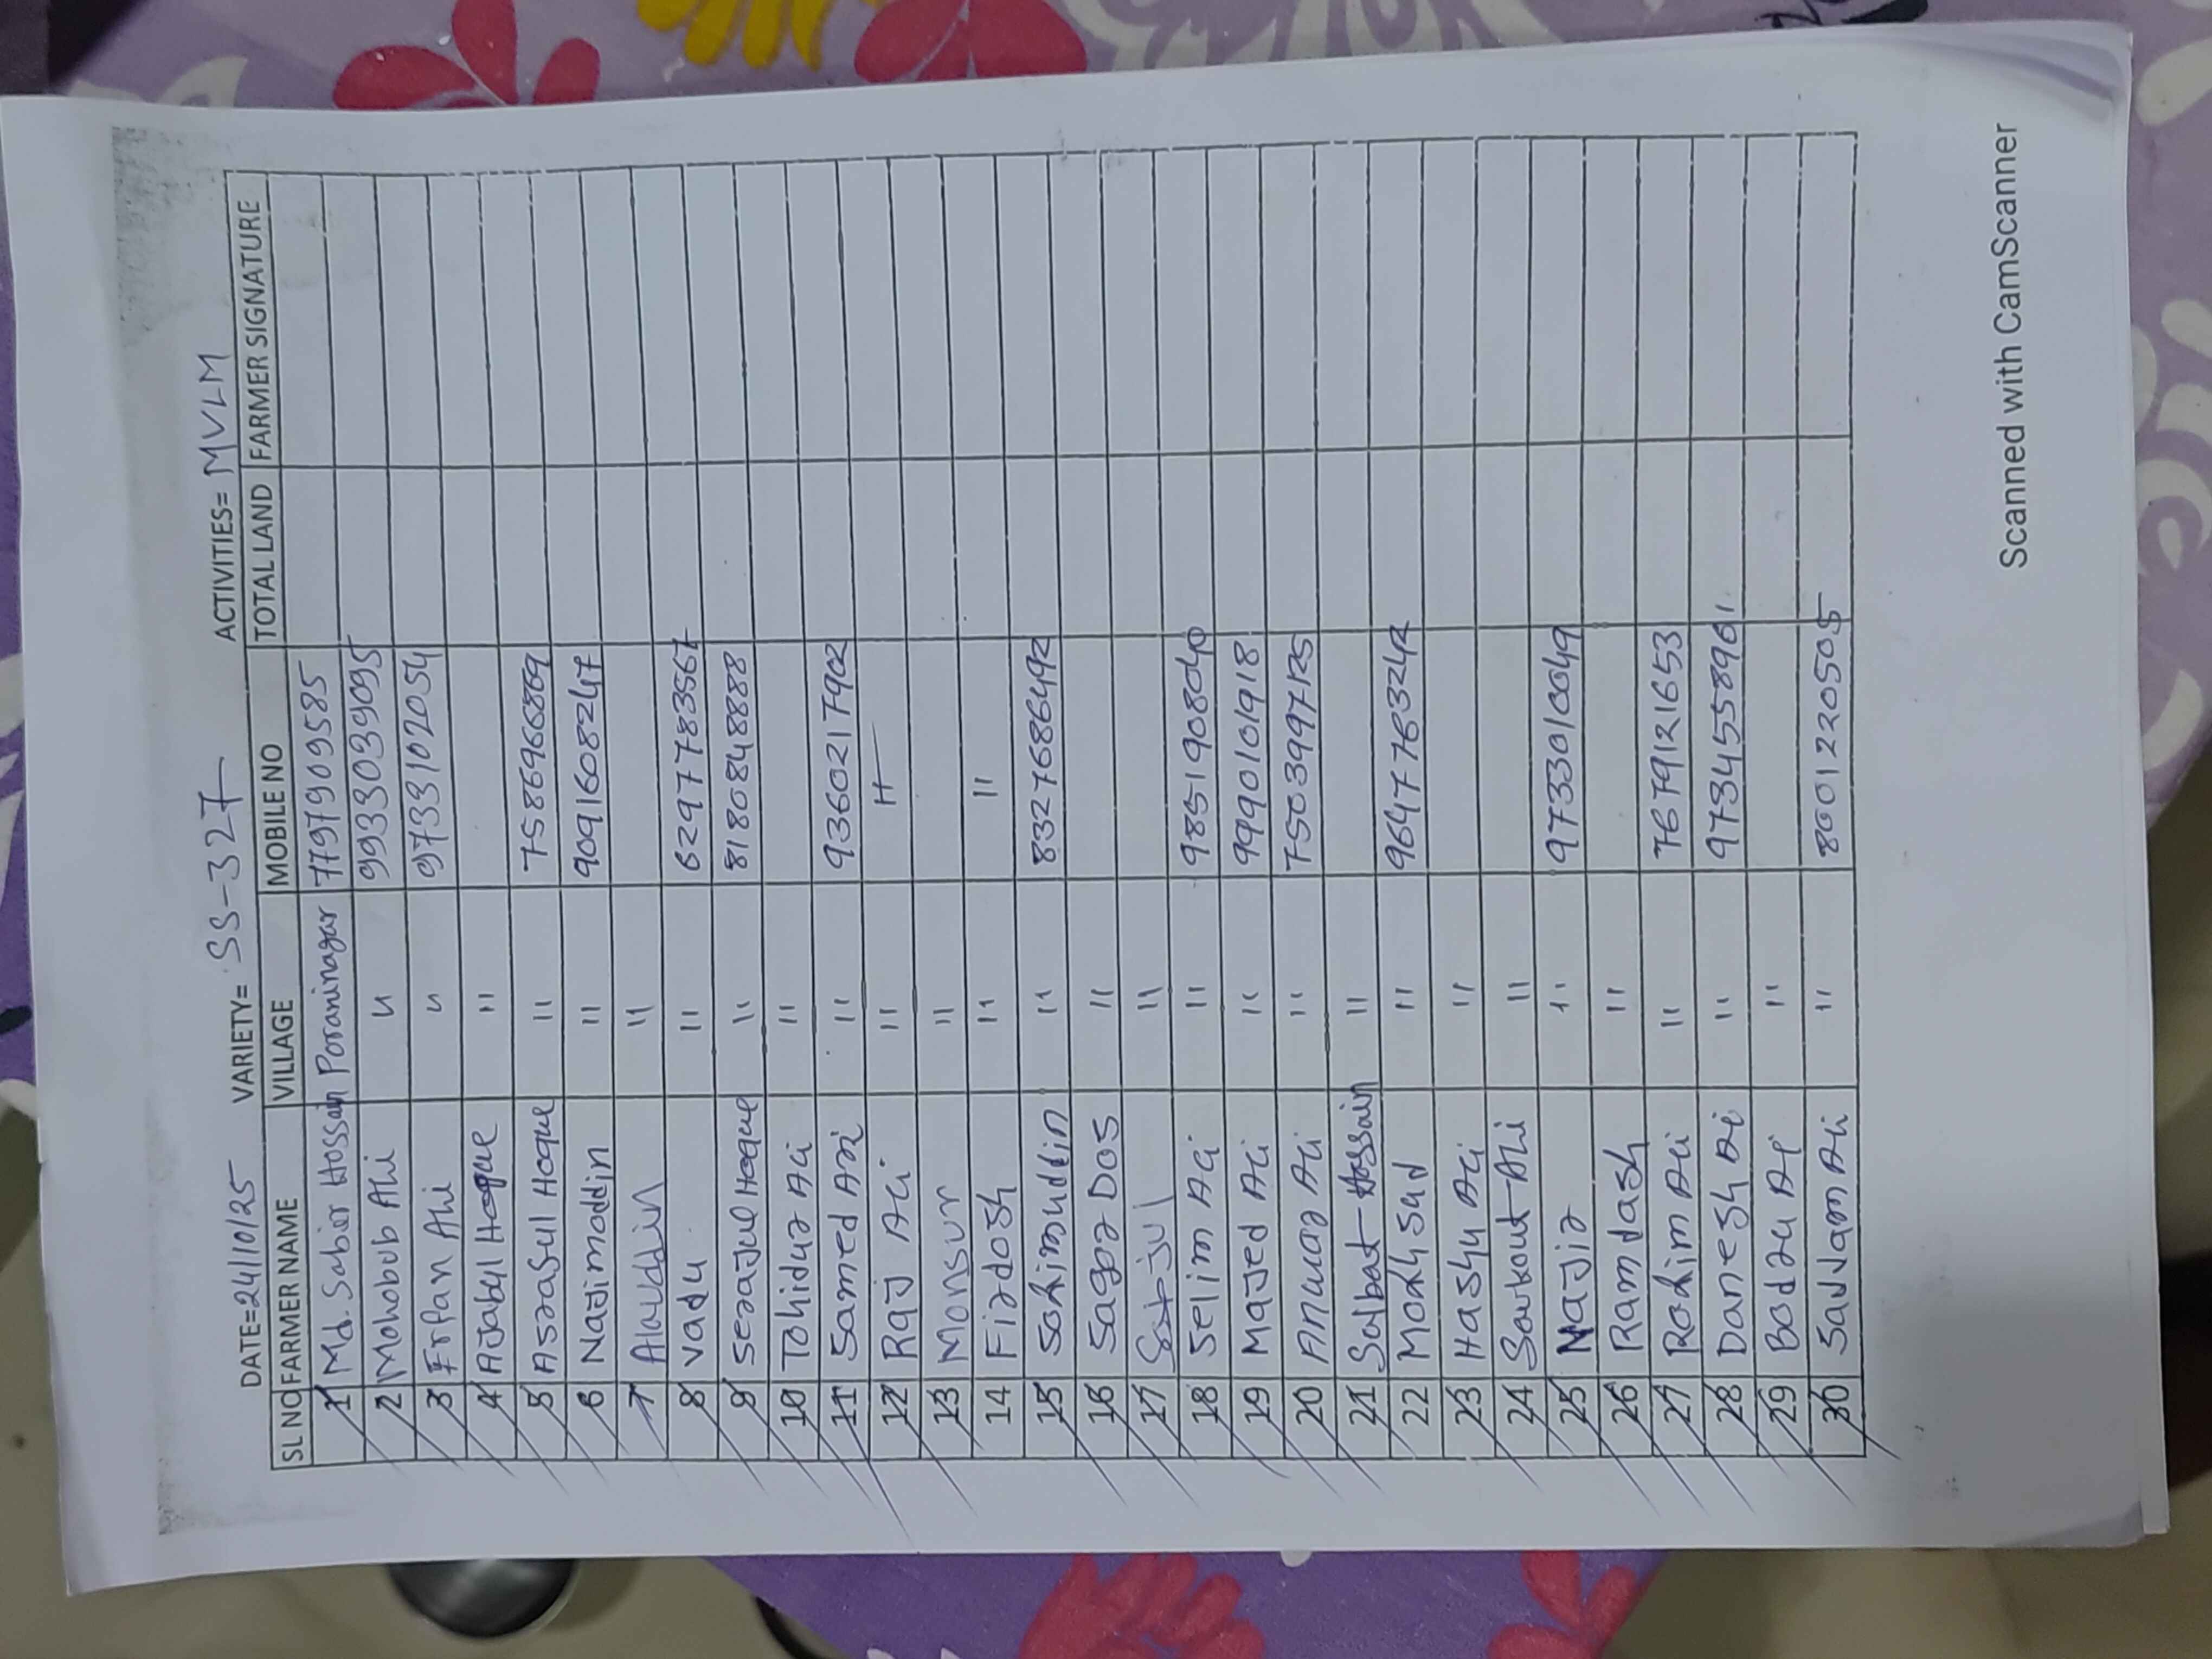 DATE=24/10/25 VARIETY= SS-327 ACTIVITIES= MVLM
SL NO FARMER NAME VILLAGE MOBILE NO TOTAL LAND FARMER SIGNATURE
1 Md. Sabir Hossain Poraninagar 7797909585
2 Mohobub Ali " 9933039095
3 Erfan Ali " 9733102054
4 Ajabul Hoque "
5 Asraful Hoque " 7586966869
6 Najimoddin " 9091608247
7 Alauddin "
8 Vadu " 6297783567
9 Serajul Hoque " 8180848888
10 Tohidur Ali "
11 Samed Ari " 9360217902
12 Raj Ali " "
13 Monsur "
14 Firdosh " "
15 Sohimuddin " 8327686492
16 Sagor Dos "
17 "
18 Selim Ali " 9851908040
19 Majed Ali " 9990101918
20 Anuwar Ali " 7503997125
21 Hossain "
22 Mokhsud " 9647763242
23 Hashu Ali "
24 Ali "
25 Najir " 9733010049
26 Ramdash "
27 Rohim Ali " 7679121653
28 Danesh Ali " 9734558961
29 Bodru Ali "
30 Saddam Ali " 8001220505
Scanned with CamScanner